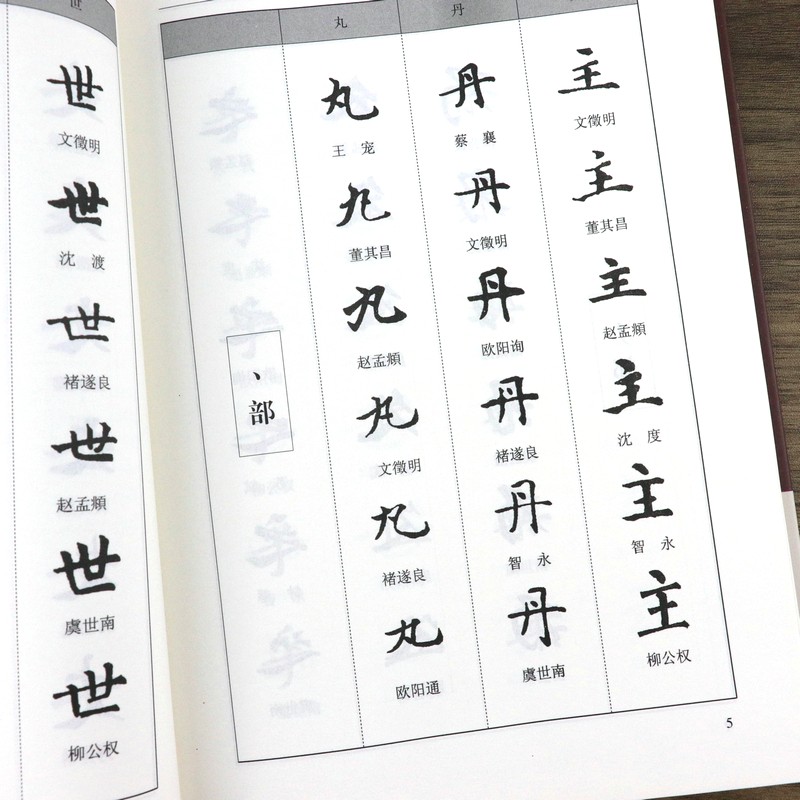 世
世
文徵明
世
沈 渡
世
褚遂良
世
赵孟頫
世
虞世南
世
柳公权
丶部
丸
丸
王 宠
丸
董其昌
丸
赵孟頫
丸
文徵明
丸
褚遂良
丸
欧阳通
丹
丹
蔡 襄
丹
文徵明
丹
欧阳询
丹
褚遂良
丹
智 永
丹
虞世南
主
文徵明
主
董其昌
主
赵孟頫
主
沈 度
主
智 永
主
柳公权
5